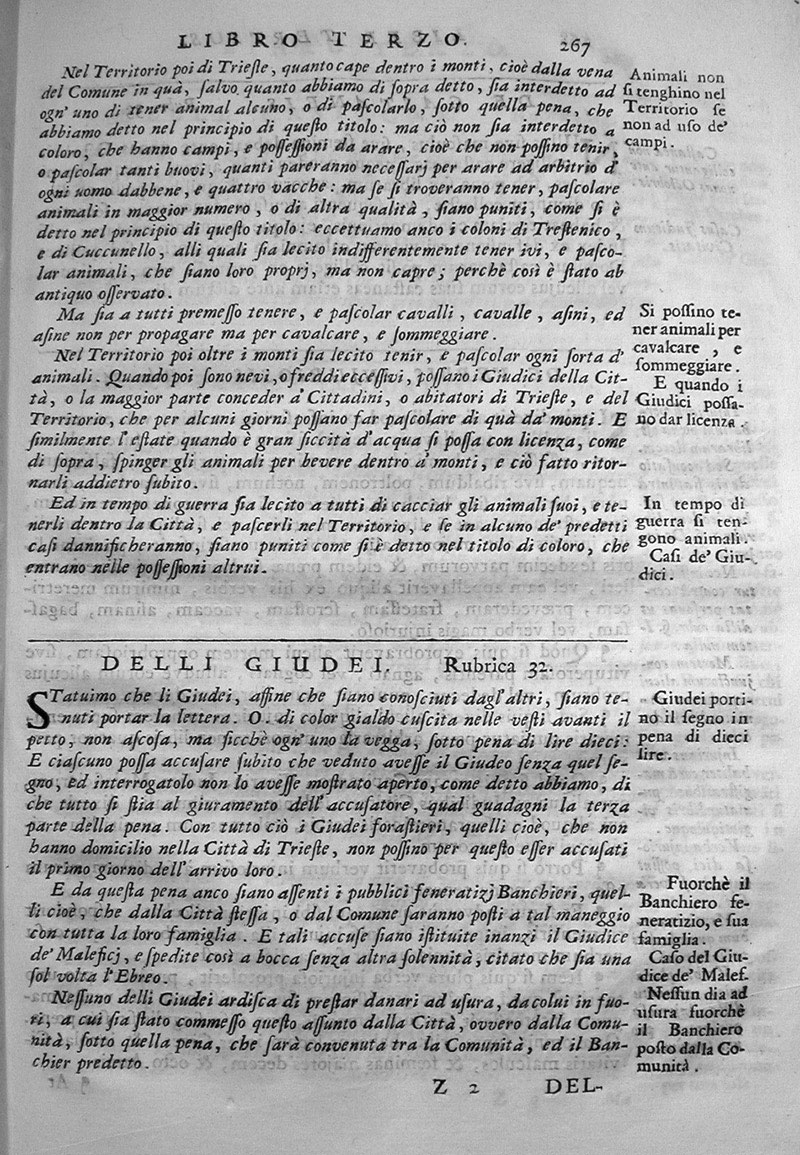 LIBRO TERZO. 267
Nel Territorio poi di Trieſte, quanto cape dentro i monti, cioè dalla vena
del Comune in quà, ſalvo quanto abbiamo di ſopra detto, ſia interdetto ad
ogn' uno di tener animal alcuno, o di paſcolarlo, ſotto quella pena, che
abbiamo detto nel principio di queſto titolo: ma ciò non ſia interdetto a
coloro, che hanno campi, e poſſeſſioni da arare, cioè che non poſſino tenir,
o paſcolar tanti buovi, quanti pareranno neceſſarj per arare ad arbitrio d'
ogni uomo dabbene, e quattro vacche: ma ſe ſi troveranno tener, paſcolare
animali in maggior numero, o di altra qualità, ſiano puniti, come ſi è
detto nel principio di queſto titolo: eccettuamo anco i coloni di Treſtenico,
e di Cuccunello, alli quali ſia lecito indifferentemente tener ivi, e paſco-
lar animali, che ſiano loro proprj, ma non capre; perchè così è ſtato ab
antiquo oſſervato.
Animali non
ſi tenghino nel
Territorio ſe
non ad uſo de'
campi.
Ma ſia a tutti premeſſo tenere, e paſcolar cavalli, cavalle, aſini, ed
aſine non per propagare ma per cavalcare, e ſommeggiare.
Nel Territorio poi oltre i monti ſia lecito tenir, e paſcolar ogni ſorta d'
animali. Quando poi ſono nevi, o freddi ecceſſivi, poſſano i Giudici della Cit-
tà, o la maggior parte conceder a' Cittadini, o abitatori di Trieſte, e del
Territorio, che per alcuni giorni poſſano far paſcolare di quà da' monti. E
ſimilmente l'eſtate quando è gran ſiccità d'acqua ſi poſſa con licenza, come
di ſopra, ſpinger gli animali per bevere dentro a' monti, e ciò fatto ritor-
narli addietro ſubito.
Si poſſino te-
ner animali per
cavalcare, e
ſommeggiare.
E quando i
Giudici poſſa-
no dar licenza.
Ed in tempo di guerra ſia lecito a tutti di cacciar gli animali ſuoi, e te-
nerli dentro la Città, e paſcerli nel Territorio, e ſe in alcuno de' predetti
caſi dannificheranno, ſiano puniti come ſi è detto nel titolo di coloro, che
entrano nelle poſſeſſioni altrui.
In tempo di
guerra ſi ten-
gono animali.
Caſi de' Giu-
dici.
DELLI GIUDEI. Rubrica 32.
STatuimo che li Giudei, affine che ſiano conoſciuti dagl'altri, ſiano te-
nuti portar la lettera. O. di color gialdo cuſcita nelle veſti avanti il
petto, non aſcoſa, ma ſicchè ogn' uno la vegga, ſotto pena di lire dieci:
E ciaſcuno poſſa accuſare ſubito che veduto aveſſe il Giudeo ſenza quel ſe-
gno, ed interrogatolo non lo aveſſe moſtrato aperto, come detto abbiamo, di
che tutto ſi ſtia al giuramento dell' accuſatore, qual guadagni la terza
parte della pena. Con tutto ciò i Giudei foraſtieri, quelli cioè, che non
hanno domicilio nella Città di Trieſte, non poſſino per queſto eſſer accuſati
il primo giorno dell' arrivo loro.
Giudei porti-
no il ſegno in
pena di dieci
lire.
E da queſta pena anco ſiano aſſenti i pubblici feneratizj Banchieri, quel-
li cioè, che dalla Città ſteſſa, o dal Comune ſaranno poſti a tal maneggio
con tutta la loro famiglia. E tali accuſe ſiano iſtituite inanzi il Giudice
de' Maleficj, e ſpedite così a bocca ſenza altra ſolennità, citato che ſia una
ſol volta l'Ebreo.
Fuorchè il
Banchiero fe-
neratizio, e ſua
famiglia.
Caſo del Giu-
dice de' Malef.
Neſſuno delli Giudei ardiſca di preſtar danari ad uſura, da colui in fuo-
ri, a cui ſia ſtato commeſſo queſto aſſunto dalla Città, ovvero dalla Comu-
nità, ſotto quella pena, che ſarà convenuta tra la Comunità, ed il Ban-
chier predetto.
Neſſun dia ad
uſura fuorchè
il Banchiero
poſto dalla Co-
munità.
Z 2 DEL-